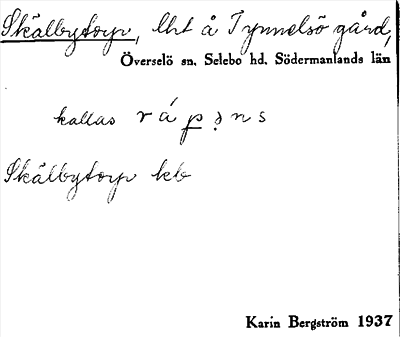 Skälbytorp, lht å Tynnelsö gård,
Överselö sn, Selebo hd, Södermanlands län
kallas
Skälbytorp kb
Karin Bergström 1937